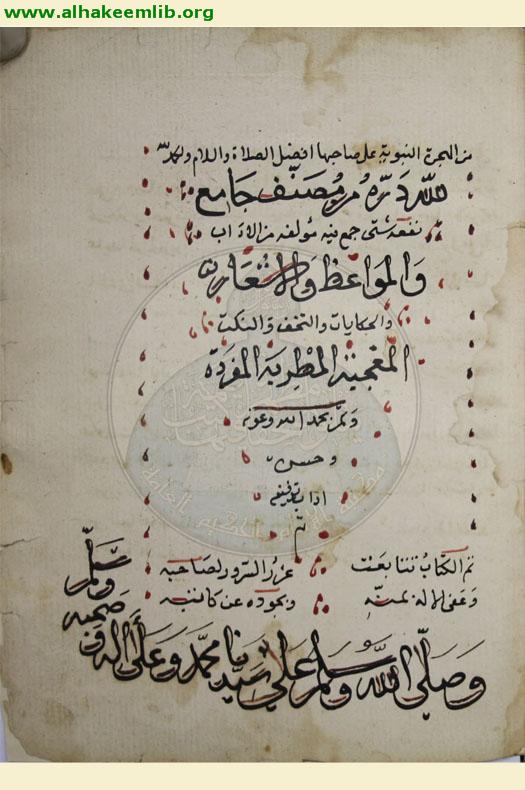 www.alhakeemlib.org
من الهجرة النبوية على صاحبها افضل الصلاة والسلام ولله
لله دره من مصنف جامع
شتى جمع فيه مؤلفه من الاداب
والمواعظ والاشعار
والحكايات والتحف والنكت
المطربة المفردة
وتم بحمد الله وعونه
وحسن
توفيقه
تم
تم الكتاب تتابعت غرر السرور لصاحبه
وعفى الاله بمنه وبجوده عن كاتبه
وصلى الله وسلم على سيدنا محمد وعلى اله و
صحبه
وسلم